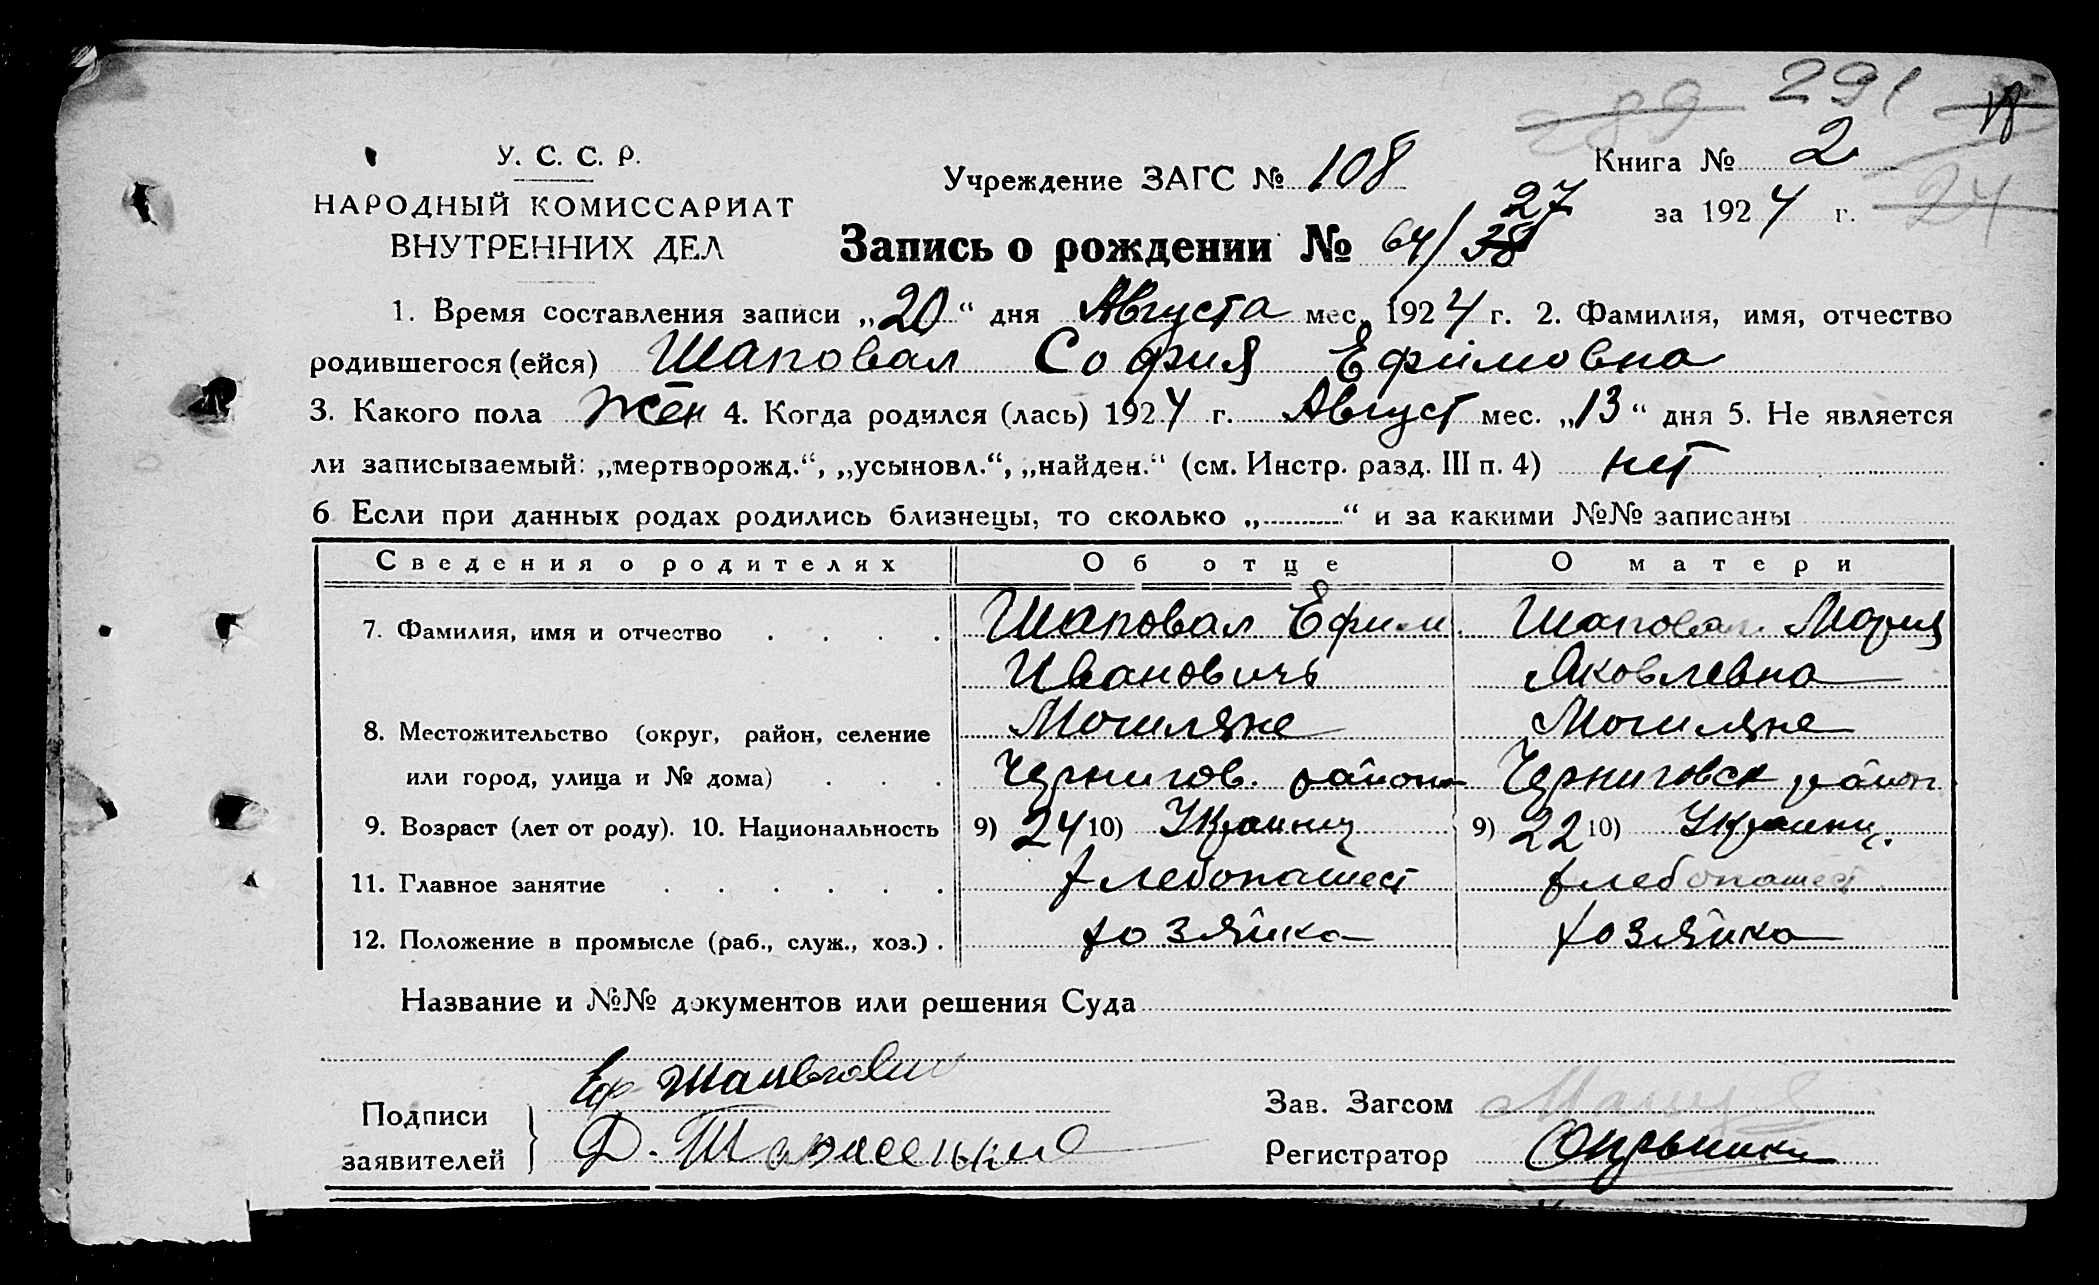 289 291 18
У. С. С. Р.
НАРОДНЫЙ КОМИССАРИАТ
ВНУТРЕННИХ ДЕЛ
Учреждение ЗАГС № 108
Книга № 2
за 1924 г. 24
Запись о рождении № 64/38 27
1. Время составления записи „20“ дня Августа мес. 1924 г. 2. Фамилия, имя, отчество
родившегося (ейся) Шаповал София Ефимовна
3. Какого пола Жен 4. Когда родился (лась) 1924 г. Август мес. „13“ дня 5. Не является
ли записываемый: „мертворожд.“, „усыновл.“, „найден.“ (см. Инстр. разд. III п. 4) нет
6 Если при данных родах родились близнецы, то сколько „..........“ и за какими №№ записаны
Сведения о родителях Об отце О матери
7. Фамилия, имя и отчество Шаповал Ефим Шаповал Мария
Ивановичь Яковлевна
8. Местожительство (округ, район, селение Могиляне Могиляне
или город, улица и № дома) Чернигов. района Черниговск район
9. Возраст (лет от роду). 10. Национальность 9) 24 10) Украинц 9) 22 10) Украинц.
11. Главное занятие хлебопашест хлебопашест
12. Положение в промысле (раб., служ., хоз.) хозяйка хозяйка
Название и №№ документов или решения Суда
Подписи
заявителей
Еф
Д.
Зав. Загсом
Регистратор